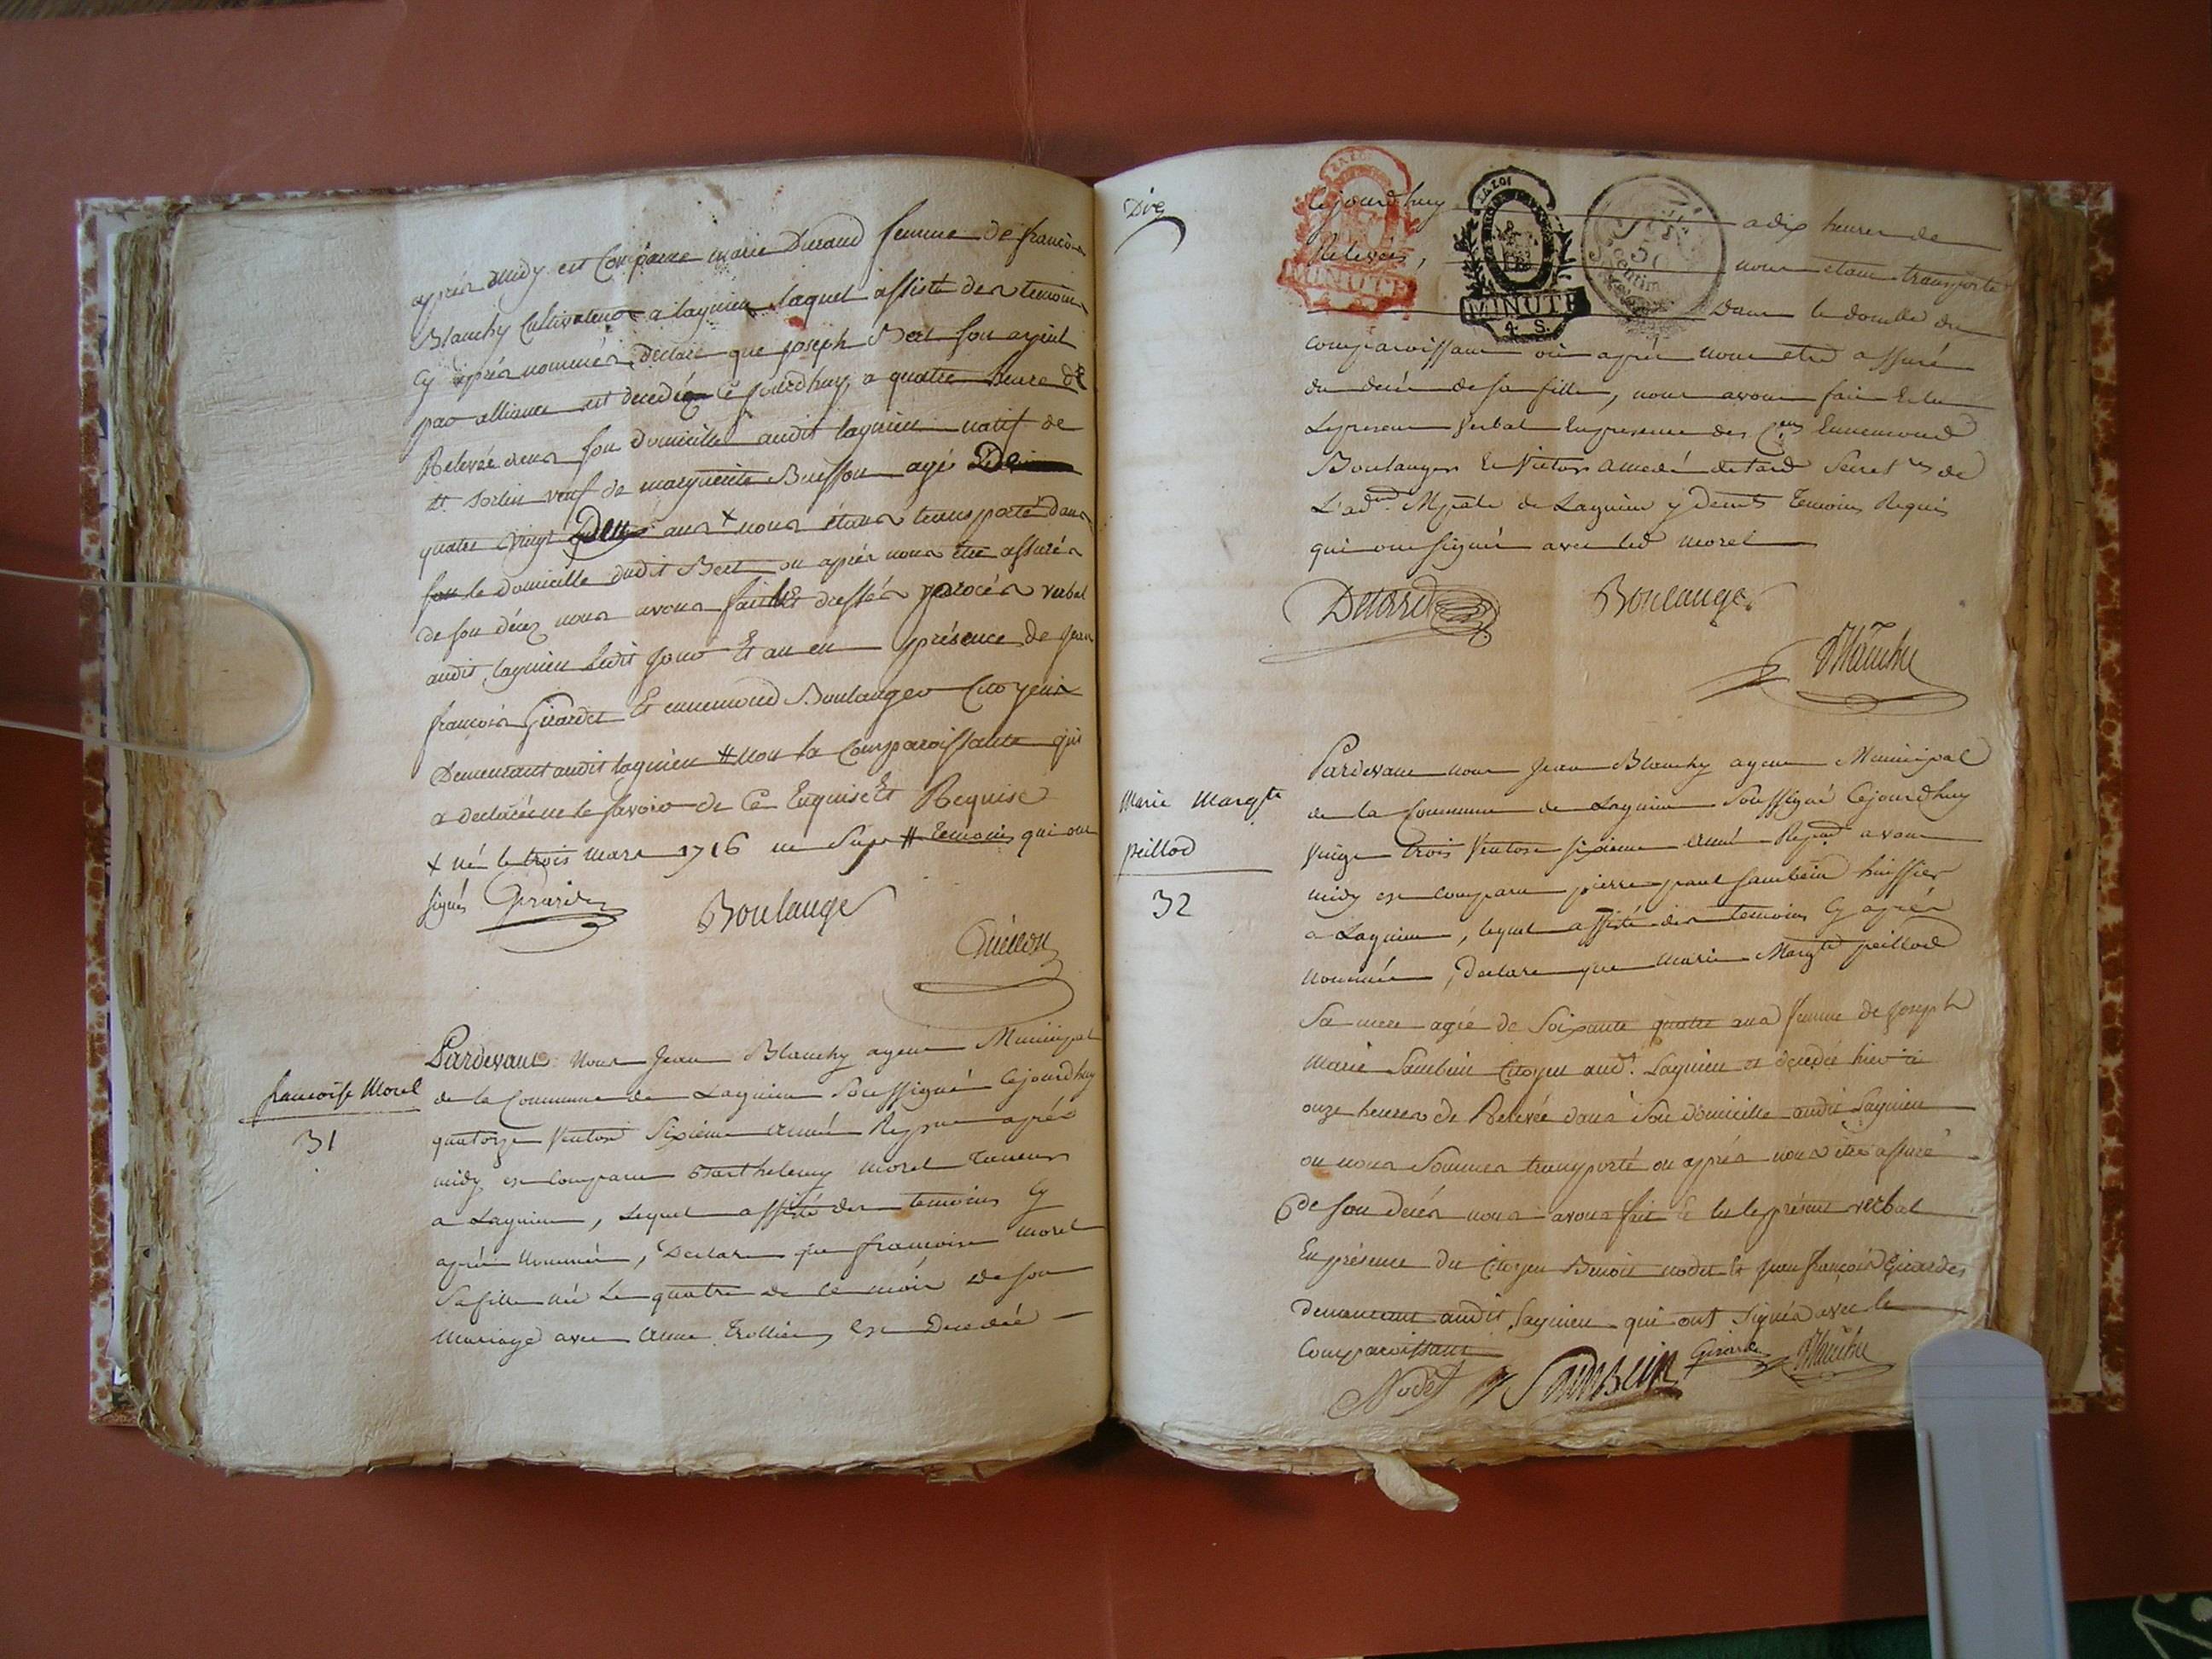 après midy est Comparue marie Durand femme de francois
Blanchy Cultivateur a lagnieu laquel assisté des temoins
Cy après nommés, déclare que joseph Bert son ayeul
par alliance est decedé Ce jourdhuy, a quatre heure de
Relevée dans son domicille audit lagnieu natif de
St Sorlin veuf de marguerite Buisson agé
quatre vingt Deux ans x nous étans transporté dans
le domicille dudit Bert ou après nous être assurés
de son décez nous avons fait Et dressés procés verbal
audit lagnieu ledit jour Et an en présence de jean
francois Girardet Et ennemond Boulanger Citoyens
Demeurant audit lagnieu # non la Comparoissante qui
a declarée ne le savoir de Ce Enquise Et Requise
x né le trois mars 1716 # temoins qui ont
signés Girardet
Boulanger
francoise Morel
31
Pardevant Nous Jean Blanchy agent Municipal
de la Commune de Lagnieu Soussigné Cejourdhuy
quatorze Ventose Sixieme année après
midy est comparu Barthelemy Morel
a Lagnieu, Lequel assisté des temoins Cy
après Nommés, Declare que francoise Morel
Sa fille née Le quatre de ce mois de son
Mariage avec Anne Trollier, est Decedée
LA LOI
MINUTE
LA LOI
MINUTE
4 S.
50
Centim
Cejourdhuy a dix heures de
Relevée, nous etant transporté
Dans le domille du
comparoissant ou après nous etre assuré
du decés de sa fille, nous avons fait Et lu
Le present Verbal En presence des Cens Ennemond
Boulanger Et Victor Amedé detard Secret re de
L'adon Mpale de Lagnieu y demt Temoins Requis
qui ont signé avec led Morel
Detard
Boulanger
Blanchy
Marie Margte
peillod
32
Pardevant nous Jean Blanchy agent Municipal
de la Commune de Lagnieu Soussigné Cejourdhuy
Vingt trois Ventose sixieme année Repne avant
midy est comparu pierre paul Sambein huissier
a Lagnieu, lequel assisté des temoins Cy après
Nommés, Declare que Marie Margte peillod
Sa mere agée de Soixante quatre ans femme de joseph
Marie Sambein Citoyen aud. Lagnieu est decedée hier à
onze heures de Relevée dans Son domicille audit Lagnieu
ou nous Sommes transporté ou après nous être assuré
de son decés nous avons fait & lu le présent verbal
En présence du Citoyen Benoit nodet & jean françois Girardet
demeurant audit Lagnieu qui ont Signés avec le
Comparoissant
Nodet Sambein Girardet Blanchy